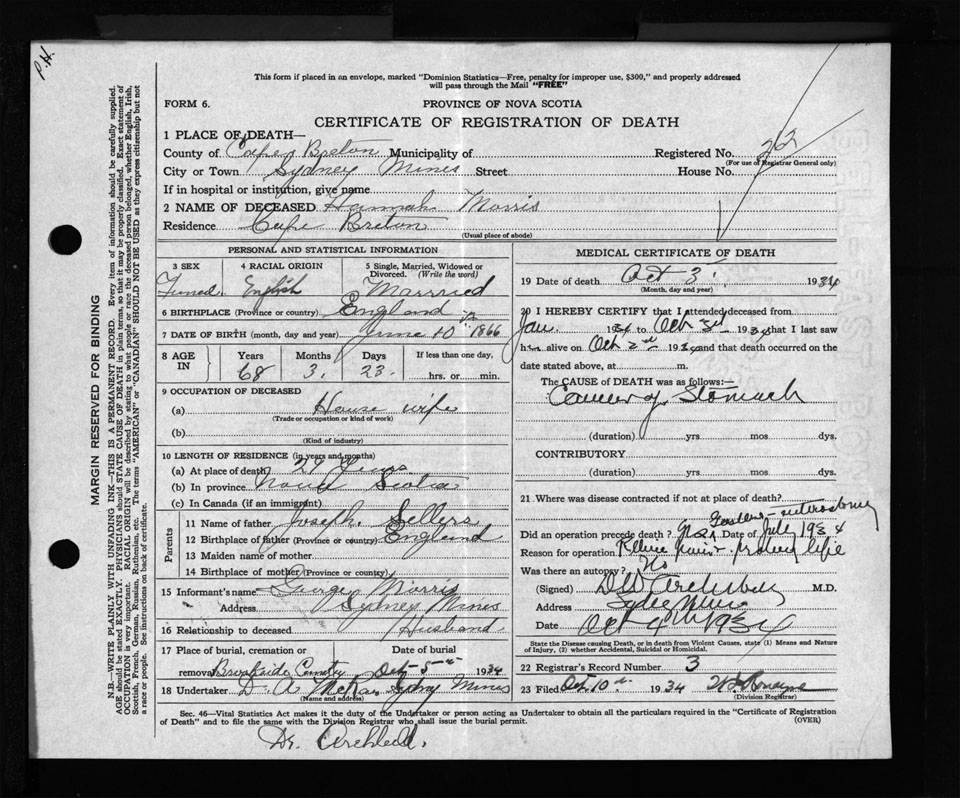 P.H.
This form if placed in an envelope, marked "Dominion Statistics—Free, penalty for improper use, $300," and properly addressed
will pass through the Mail "FREE"
FORM 6. PROVINCE OF NOVA SCOTIA
CERTIFICATE OF REGISTRATION OF DEATH
1 PLACE OF DEATH—
County of Cape Breton Municipality of Registered No. 262
(For use of Registrar General only)
City or Town Sydney Mines Street House No.
If in hospital or institution, give name
2 NAME OF DECEASED Hannah Morris
Residence Cape Breton
(Usual place of abode)
PERSONAL AND STATISTICAL INFORMATION
3 SEX 4 RACIAL ORIGIN 5 Single, Married, Widowed or
Divorced. (Write the word)
English Marrried
6 BIRTHPLACE (Province or country) England
7 DATE OF BIRTH (month, day and year) June 10 1866
8 AGE IN Years Months Days If less than one day,
68 3. 23. hrs. or min.
9 OCCUPATION OF DECEASED
(a) House wife
(Trade or occupation or kind of work)
(b)
(Kind of industry)
10 LENGTH OF RESIDENCE (in years and months)
(a) At place of death 29 Years
(b) In province Nova Scotia
(c) In Canada (if an immigrant)
Parents
11 Name of father Joseph Sellers
12 Birthplace of father (Province or country) England
13 Maiden name of mother
14 Birthplace of mother (Province or country)
15 Informant's name George Morris
Address Sydney Mines
16 Relationship to deceased Husband
17 Place of burial, cremation or Date of burial
removal Brookside Oct 5 1934
18 Undertaker D. A. McRae Sydney Mines
(Name and address)
MEDICAL CERTIFICATE OF DEATH
19 Date of death Oct 3 1934
(Month, day and year)
20 I HEREBY CERTIFY that I attended deceased from
Jan. 1934 to Oct 3rd 1934 that I last saw
her alive on Oct 2nd 1934 and that death occurred on the
date stated above, at m.
The CAUSE OF DEATH was as follows:—
Cancer of Stomach
(duration) yrs mos dys.
CONTRIBUTORY
(duration) yrs mos. dys.
21 Where was disease contracted if not at place of death?
Gastero-enterostomy
Did an operation precede death? Yes Date of July 1934
Reason for operation Relieve pain & prolong life
Was there an autopsy? No
(Signed) M.D.
Address Sydney Mines
Date Oct 4th 1934
State the Disease causing Death, or in death from Violent Causes, state (1) Means and Nature
of Injury, (2) whether Accidental, Suicidal or Homicidal.
22 Registrar's Record Number 3
23 Filed Oct. 10th 1934
(Division Registrar)
Sec. 46—Vital Statistics Act makes it the duty of the Undertaker or person acting as Undertaker to obtain all the particulars required in the "Certificate of Registration
of Death" and to file the same with the Division Registrar who shall issue the burial permit. (OVER)
Dr.
MARGIN RESERVED FOR BINDING
N.B.—WRITE PLAINLY WITH UNFADING INK—THIS IS A PERMANENT RECORD. Every item of information should be carefully supplied.
AGE should be stated EXACTLY. PHYSICIANS should STATE CAUSE OF DEATH in plain terms, so that it may be properly classified. Exact statement of
OCCUPATION is very important. RACIAL ORIGIN will be described by stating to what people or race the deceased person belonged, whether English, Irish,
Scottish, French, German, Russian, Ruthenian, etc. The terms "AMERICAN" or "CANADIAN" SHOULD NOT BE USED as they express citizenship but not
a race or people. See instructions on back of certificate.